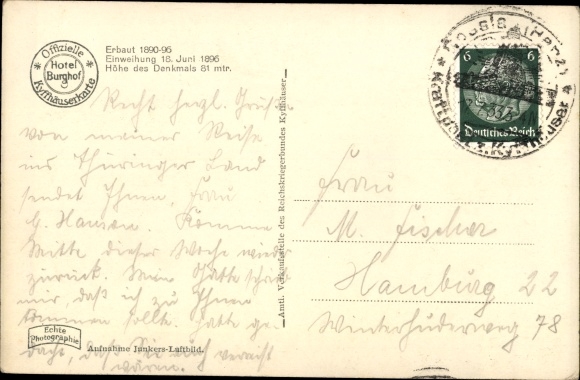 Offizielle
Hotel
Burghof
Kyffhäuserkarte
Erbaut 1890-96
Einweihung 18. Juni 1896
Höhe des Denkmals 81 mtr.
Recht herzl. Grüße
von meiner Reise
ins Thüringer Land
sendet Ihnen, Frau
Hansen. Komme
Mitte dieser Woche wieder
zurück. Mein
mir, daß ich zu Ihnen
kommen sollte. Hatte ge-
dacht, daß Sie auch verreist
wären.
Echte
Photographie
Aufnahme Junkers-Luftbild.
Amtl. Verkaufsstelle des Reichskriegerbundes Kyffhäuser
6 6
Deutsches Reich
Rossla (Harz)
Kyffhäuser
Frau
M. Fischer
Hamburg 22
Winterhuderweg 78